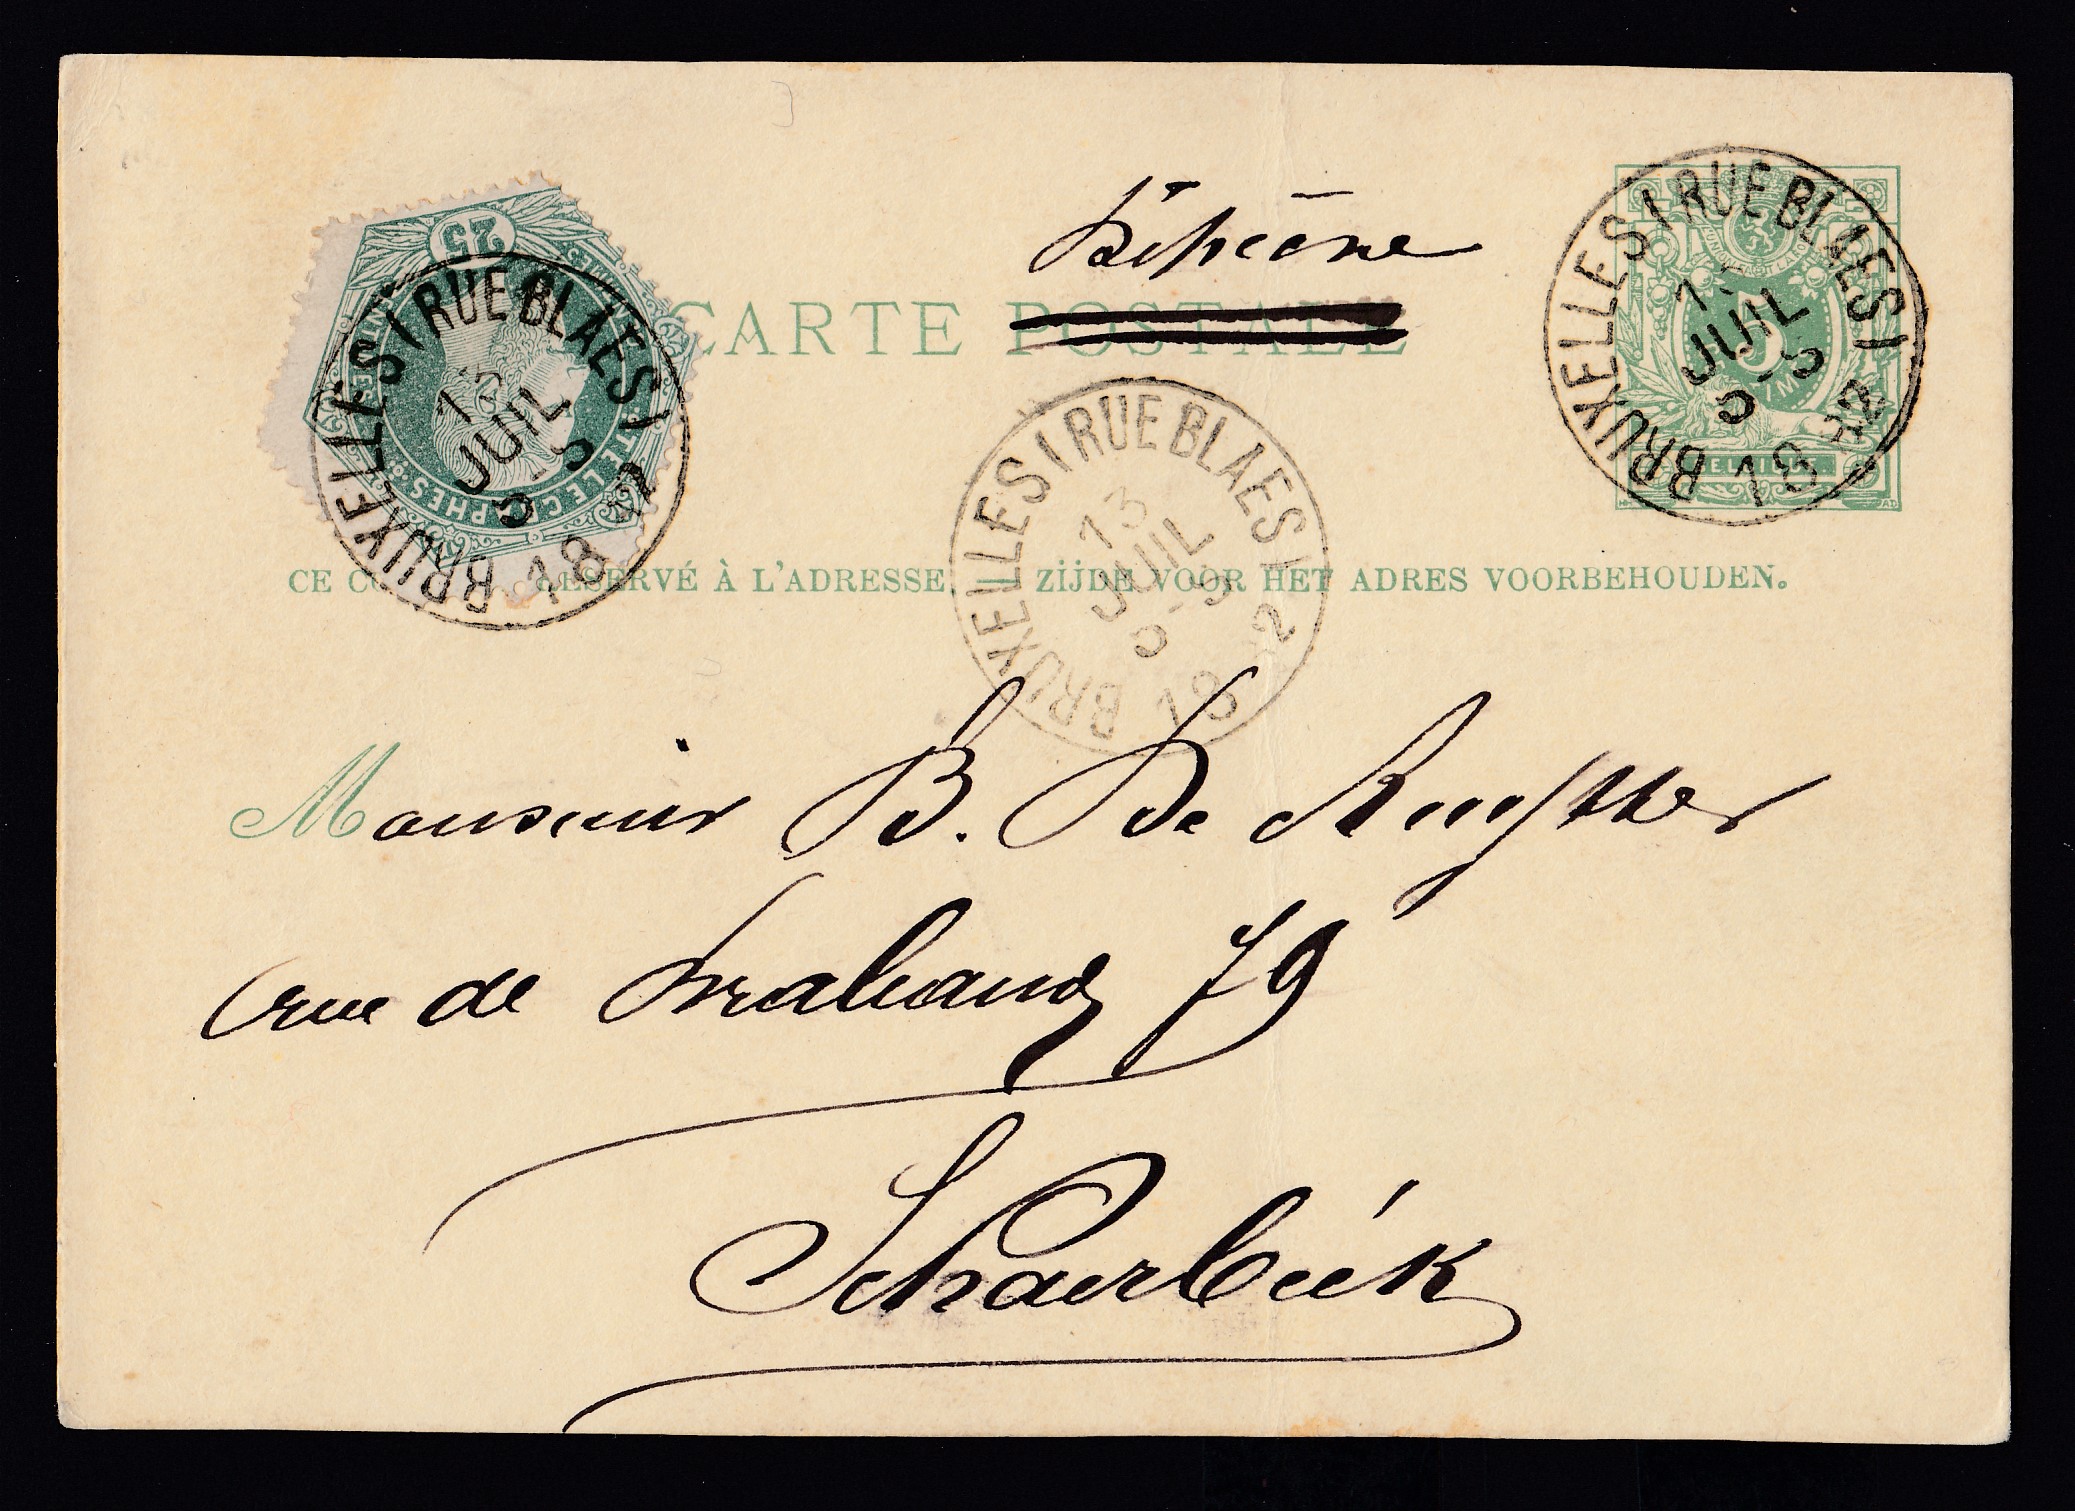 Téléphone
CARTE POSTALE
25
TÉLÉGRAPHES
BRUXELLES (RUE BLAES)
13
JUIL
5-S
18 2
BRUXELLES (RUE BLAES)
13
JUIL
5-S
18 2
BRUXELLES (RUE BLAES)
13
JUIL
5-S
18 2
5
BELGIQUE
CE CO RÉSERVÉ À L'ADRESSE. — ZIJDE VOOR HET ADRES VOORBEHOUDEN.
Monsieur B. De Ruytter
rue de Brabant 79
Schaerbéék